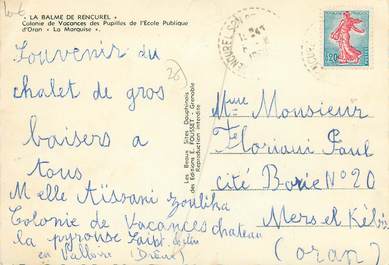 « LA BALME DE RENCUREL »
Colonie de Vacances des Pupilles de l'Ecole Publique
d'Oran « La Marquise ».
Souvenir du
chalet de gros
baisers a
tous
Melle Aïssani zoulika
Colonie de Vacances chateau
la pyrouse
en Valloire (Drôme)
Les Beaux Sites Dauphinois
des Editions E. FOUSSET - Grenoble
Reproduction interdite
26
RENCUREL
0,20
Mme Monsieur
Floriani Paul
cité Borie N° 20
Mers el Kébir
(oran)